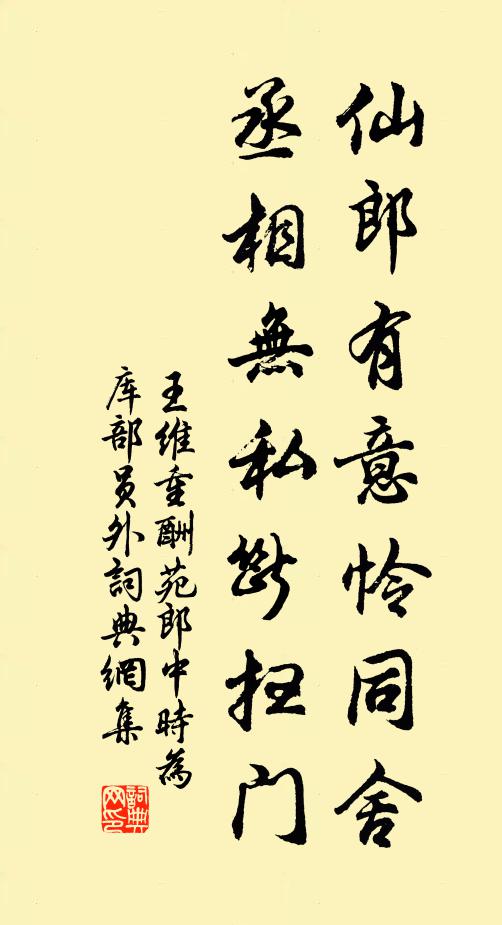 仙郎有意怜同舍
丞相無私断扫门
王維重酬苑郎中時為
库部员外詞典網集
詞典网印